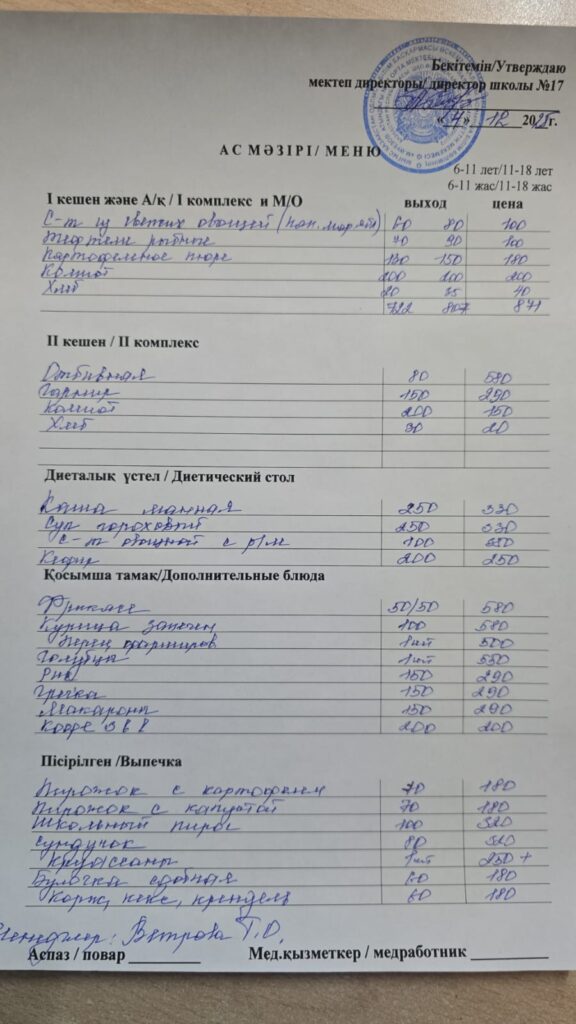 Бекітемін/Утверждаю
мектеп директоры/ директор школы №17
«4» 12 2025г.
АС МӘЗІРІ/ МЕНЮ
6-11 лет/11-18 лет
6-11 жас/11-18 жас
І кешен және А/қ / І комплекс и М/О выход цена
С-т из свежих овощей (кап. морк) 60 80 100
рыбные 70 90 100
Картофельное пюре 130 150 180
Компот 200 200 200
Хлеб 20 35 40
722 807 871
ІІ кешен / ІІ комплекс
Отбивная 80 580
Гарнир 150 290
Компот 200 150
Хлеб 30 20
Диеталық үстел / Диетический стол
Каша манная 250 330
Суп гороховый 250 330
С-т овощной с р/м 100
Кефир 200 250
Қосымша тамақ/Дополнительные блюда
Фрикасе 50/50 580
Курица запеч 100 580
Перец фарширов 1шт 500
Голубцы 1шт 550
Рис 150 290
Гречка 150 290
Макароны 150 290
Кофе 3 в 1 200 200
Пісірілген /Выпечка
Пирожок с картофелем 70 180
Пирожок с капустой 70 180
Школьный пирог 100 320
Сундучок 80 320
Круассаны 1шт 250 +
Булочка сдобная 60 180
Корж, кекс, крендель 60 180
Менеджер: Ветрова Т.О.
Аспаз / повар ________ Мед.қызметкер / медработник ________